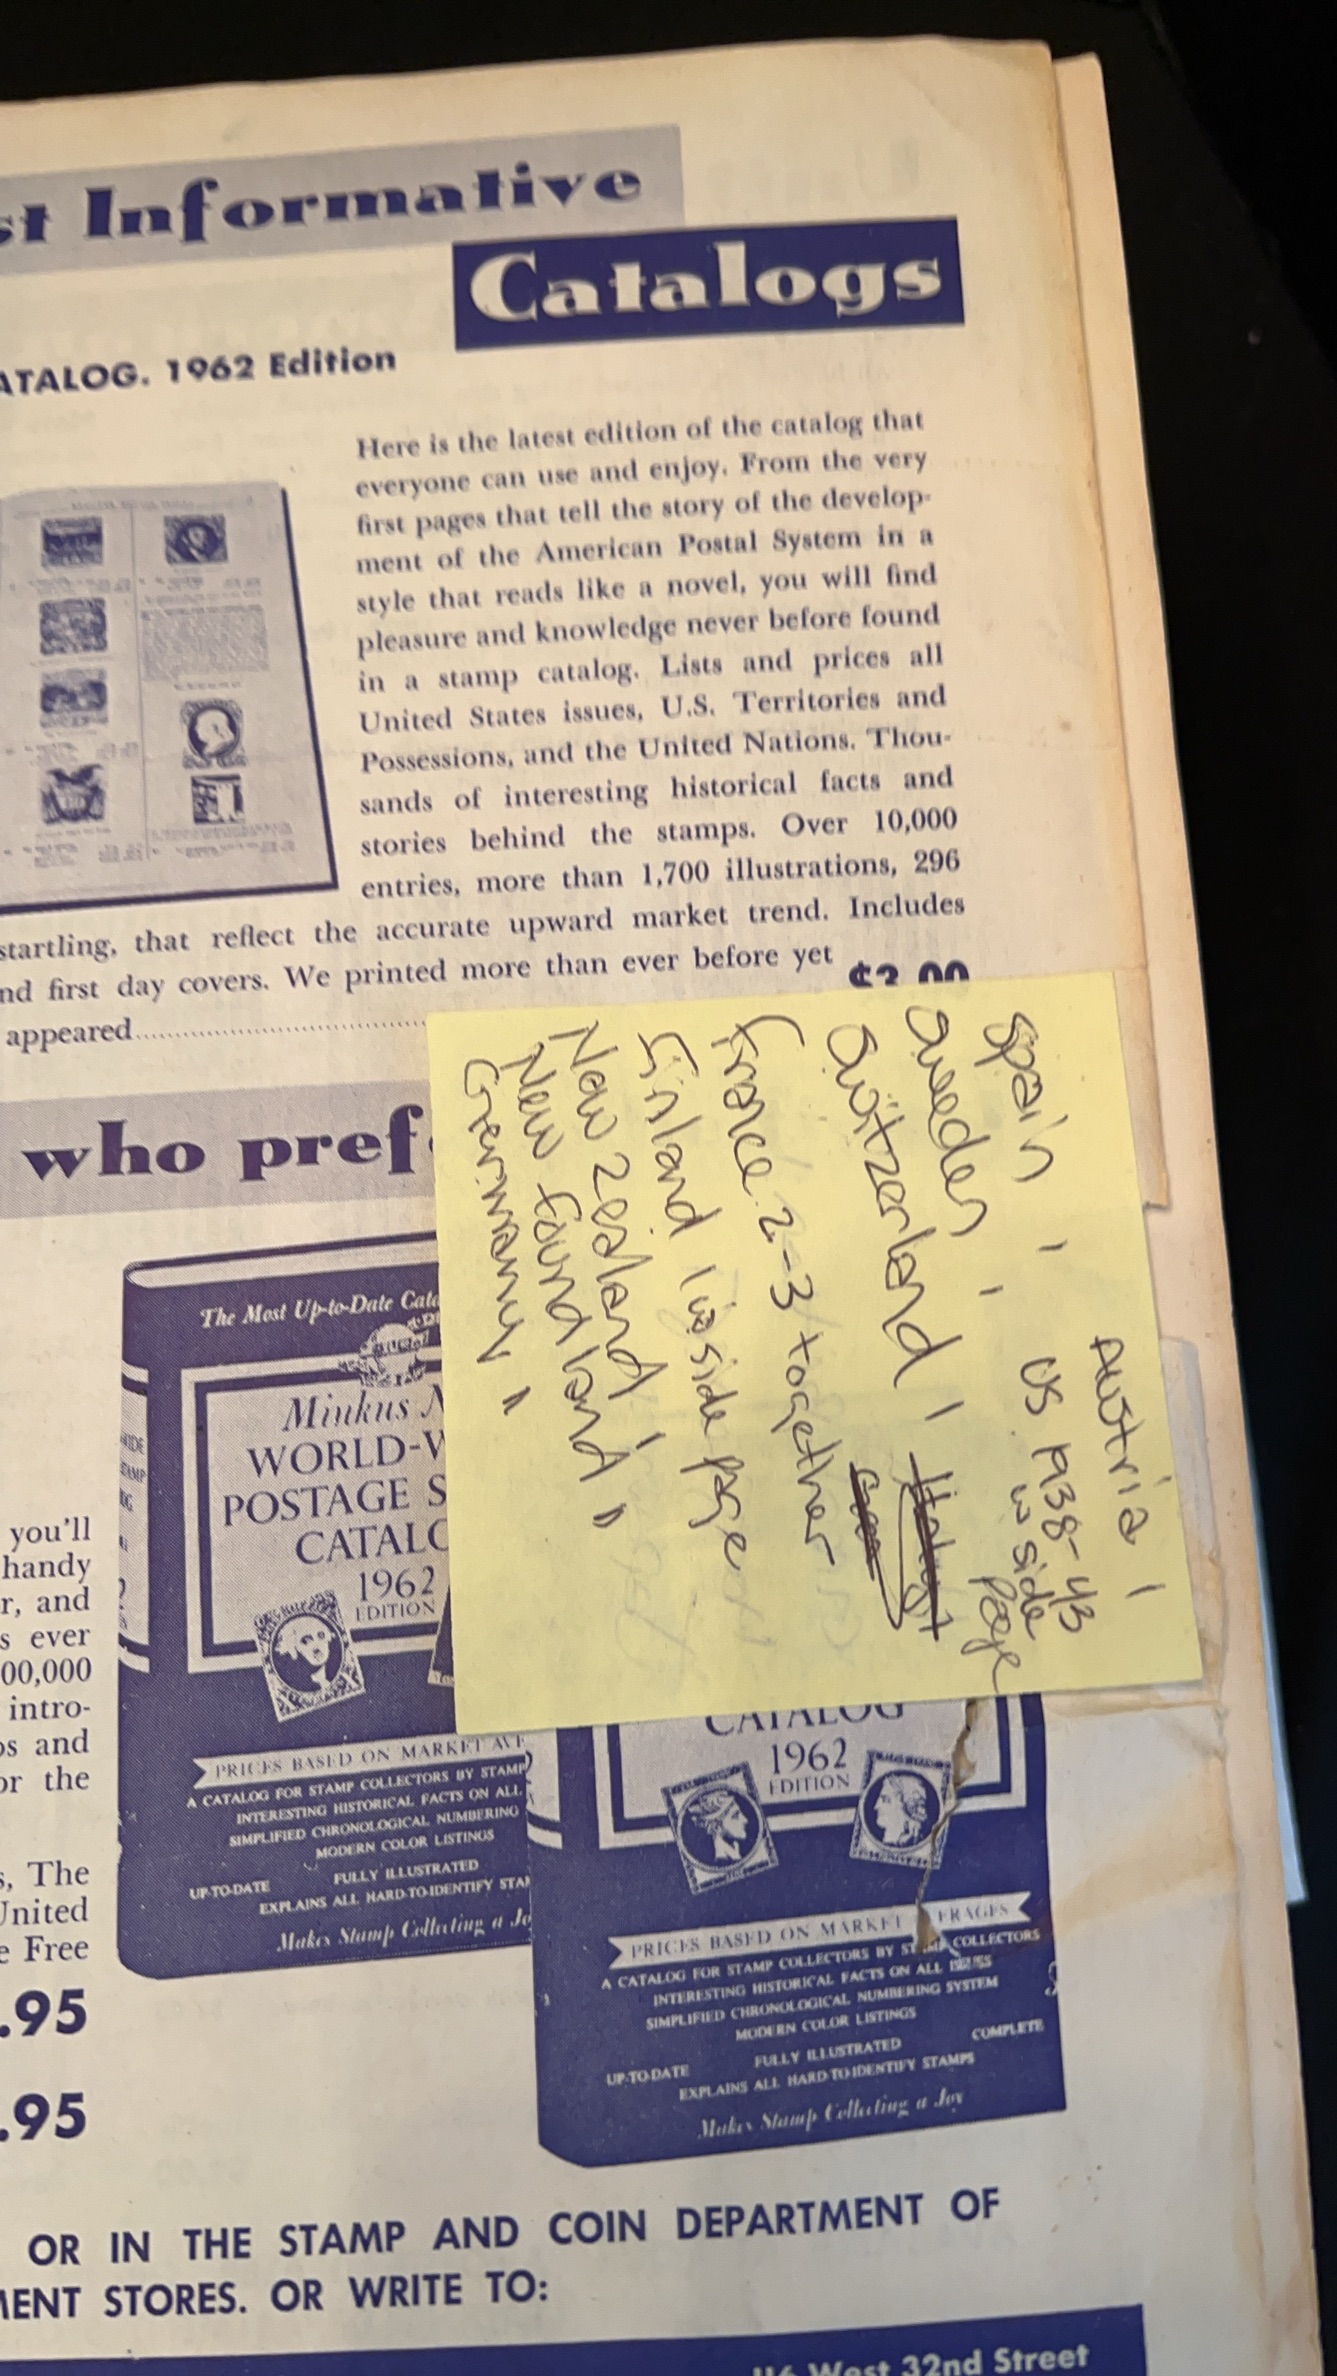 st Informative
Catalogs
ATALOG. 1962 Edition
Here is the latest edition of the catalog that
everyone can use and enjoy. From the very
first pages that tell the story of the develop-
ment of the American Postal System in a
style that reads like a novel, you will find
pleasure and knowledge never before found
in a stamp catalog. Lists and prices all
United States issues, U.S. Territories and
Possessions, and the United Nations. Thou-
sands of interesting historical facts and
stories behind the stamps. Over 10,000
entries, more than 1,700 illustrations, 296
startling, that reflect the accurate upward market trend. Includes
nd first day covers. We printed more than ever before yet
appeared
$3.00
who pref
Austria 1
Spain 1 US 1938-43
w side
page
Sweden 1
Switzerland 1
France 2-3 together
Finland 1 w side page
New Zealand 1
New foundland "
Germany "
The Most Up-to-Date Cata
Minkus N
WORLD-W
POSTAGE S
CATALO
1962
EDITION
PRICES BASED ON MARKET AVE
A CATALOG FOR STAMP COLLECTORS BY STAMP
INTERESTING HISTORICAL FACTS ON ALL
SIMPLIFIED CHRONOLOGICAL NUMBERING
MODERN COLOR LISTINGS
UP-TO-DATE FULLY ILLUSTRATED
EXPLAINS ALL HARD-TO-IDENTIFY STAM
Makes Stamp Collecting a Jo
CATALOG
1962
EDITION
PRICES BASED ON MARKET ERAGES
A CATALOG FOR STAMP COLLECTORS BY STAMP COLLECTORS
INTERESTING HISTORICAL FACTS ON ALL ISSUES
SIMPLIFIED CHRONOLOGICAL NUMBERING SYSTEM
MODERN COLOR LISTINGS
UP-TO-DATE FULLY ILLUSTRATED COMPLETE
EXPLAINS ALL HARD-TO-IDENTIFY STAMPS
Makes Stamp Collecting a Joy
you'll
handy
r, and
s ever
00,000
intro-
ps and
or the
s, The
United
e Free
.95
.95
OR IN THE STAMP AND COIN DEPARTMENT OF
MENT STORES. OR WRITE TO:
116 West 32nd Street